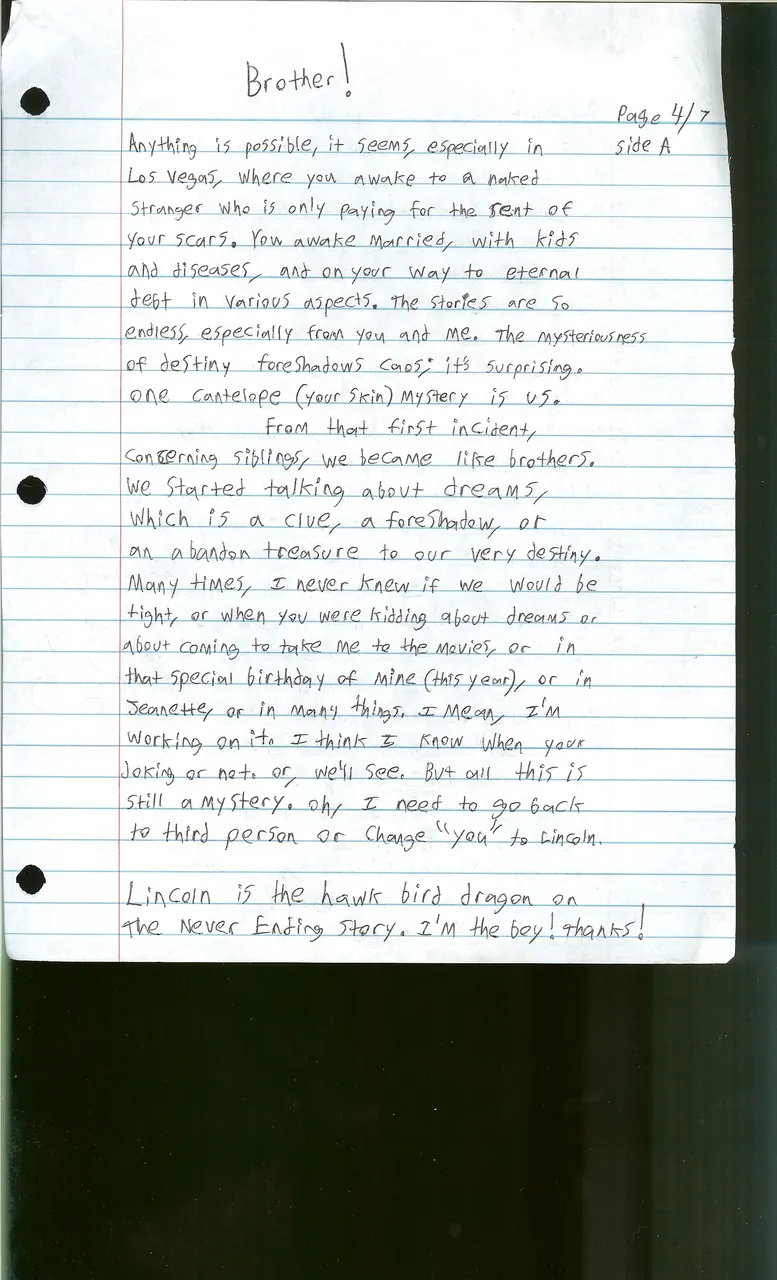 Brother!
Page 4/7
side A
Anything is possible, it seems, especially in
Los Vegas, where you awake to a naked
stranger who is only paying for the rent of
your scars. You awake married, with kids
and diseases, and on your way to eternal
debt in various aspects. The stories are so
endless, especially from you and me. The mysteriousness
of destiny foreshadows caos; it's surprising.
one cantelope (your skin) mystery is us.
From that first incident,
concerning siblings, we became like brothers.
We started talking about dreams,
which is a clue, a foreshadow, or
an abandon treasure to our very destiny.
Many times, I never knew if we would be
tight, or when you were kidding about dreams or
about coming to take me to the movies, or in
that special birthday of mine (this year), or in
Jeanette, or in many things. I mean, I'm
working on it. I think I know when your
joking or not. or, we'll see. But all this is
still a mystery. oh, I need to go back
to third person or change "you" to Lincoln.
Lincoln is the hawk bird dragon on
the Never Ending Story. I'm the boy! thanks!